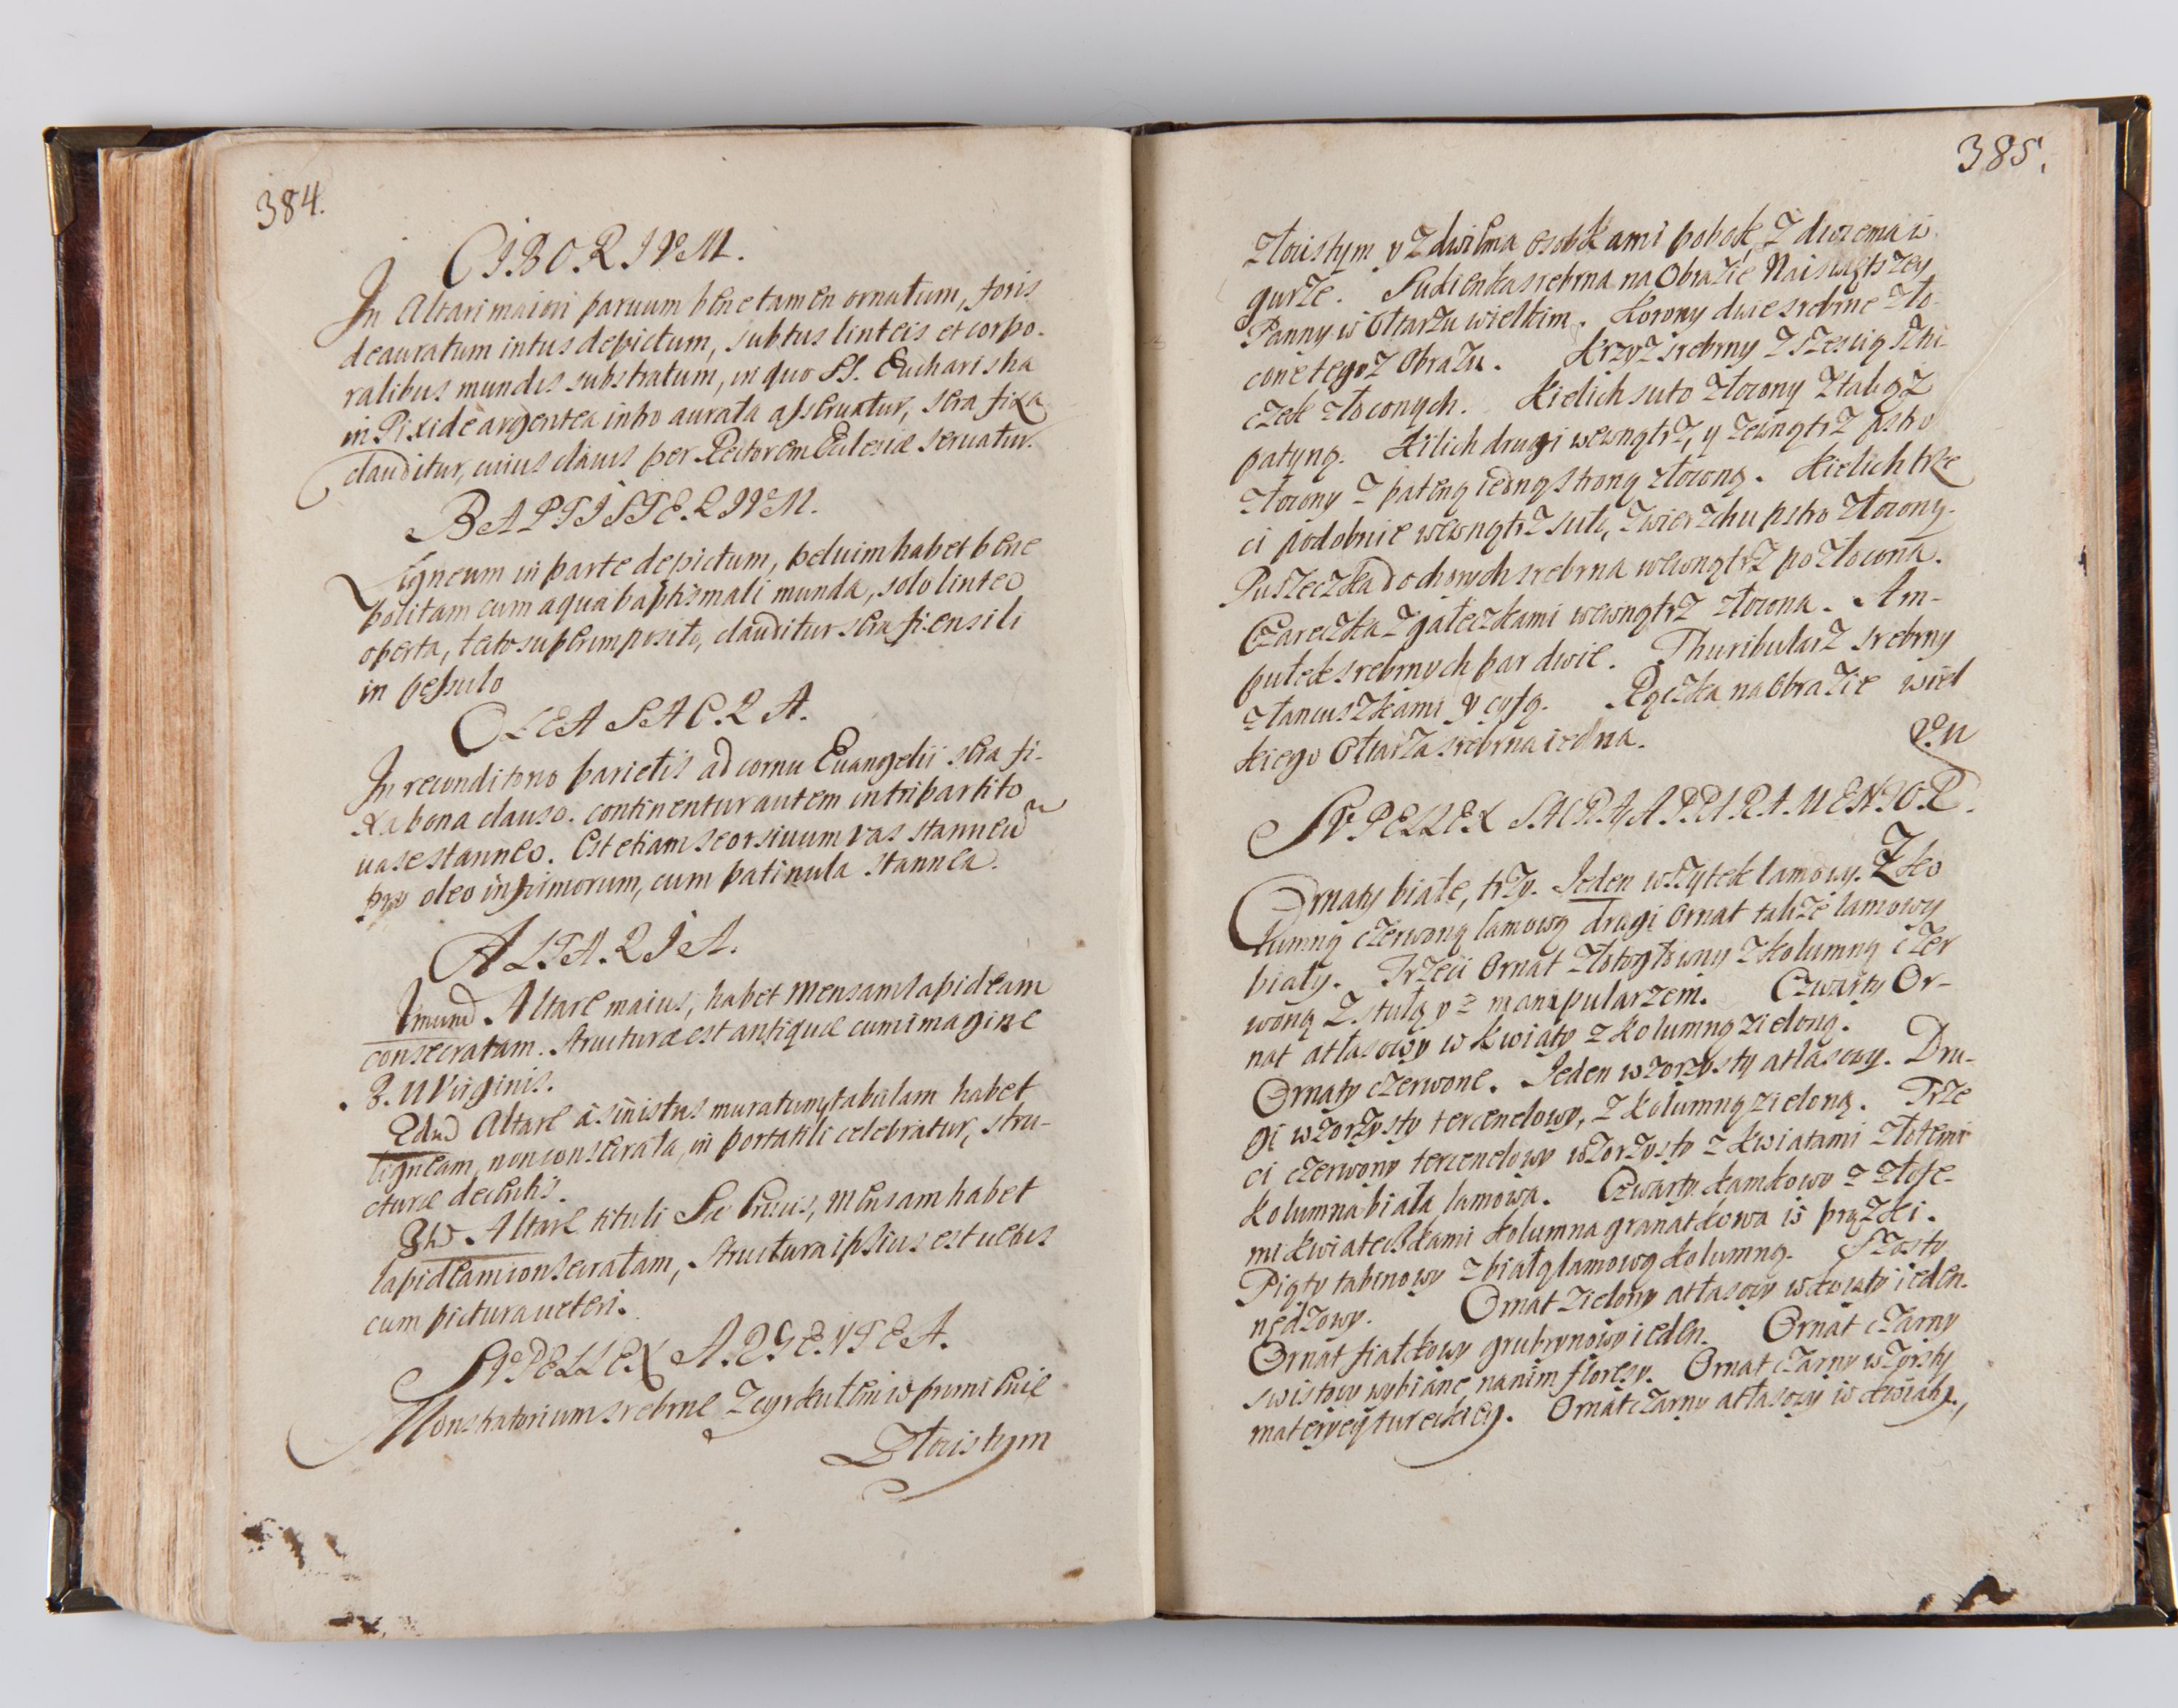 384.
CIBORIVM.
In Altari maiori paruum bene tamen ornatum, foris
deauratum intus depictum, subtus linteis et corpo-
ralibus mundis substratum, in quo SS. Eucharistia
in Pixide argentea intro aurata asseruatur, sera fixa
clauditur, cuius clauis per Rectorem Ecclesiæ seruatur.
BAPTISTERIVM.
Ligneum in parte depictum, peluim habet bene
politam cum aqua baptismali munda, solo linteo
operta, tecto superimposito, clauditur sera pensili
in pessulo
OLEA SACRA.
In reconditorio parietis ad cornu Euangelii sera fi-
xa bona clauso. continentur autem in tripartito
uase stanneo. Est etiam seorsiuum vas stanneū
pro oleo infirmorum, cum patinula stannea.
ALTARIA.
Imum Altare maius, habet mensam lapideam
consecratam. Structuræ est antiquæ cum imagine
B. M Virginis.
2dum Altare à sinistris muratum, tabulam habet
ligneam, non consecrata, in portatili celebratur, stru-
cturæ decentis.
3tium Altare tituli Sæ Crucis, mensam habet
lapideam consecratam, Structura ipsius est uetus
cum pictura ueteri.
SVPELLEX ARGENTEA.
Monstratorium srebrne z cyrkułem w promienie
Złocistym
385.
złocistym y z dwiema osobkami pobok, z dwiema w
gurze. Sudienka srebrna na Obrazie Naiswiętszey
Panny w Ołtarzu wielkim. Korony dwie srebrne zło-
cone tegoż Obrazu. Krzyż srebrny z szescią sztu-
czek złoconych. Kielich suto złocony z takąż
patyną. Kilich drugi wewnątrz, y zewnątrz pstro
złocony z pateną iedną stroną złoconą. Kielich trze
ci podobnie wewnątrz suto, zwierzchu pstro złocony.
Puszeczka do chorych srebrna wewnątrz pozłocona.
Czareczka z gałeczkami wewnątrz złocona. Am-
pułek srebrnych par dwie. Thuribularz srebrny
z łancuszkami y cyfą. Rączka na obrazie wiel
kiego Ołtarza srebrna iedna.
SVPELLEX SACRA APPARAMENTOR.
Ornaty białe, trzy. Jeden wszytek lamowy. Z ko
lumną czerwoną lamową drugi Ornat takze lamowy
biały. Trzeci Ornat złotogłowny z kolumną czer
woną z stułą y z manipularzem. Czwarty Or-
nat atłasowy w kwiaty z kolumną zieloną.
Ornaty czerwone. Jeden wzorzysty atłasowy. Dru-
gi wzorzysty tercenelowy, z kolumną zieloną. Trze
ci czerwony tercenelowy wzorzysty z kwiatami złotemi
kolumna biała lamowa. Czwarty kamkowy z złote-
mi kwiateczkami kolumna granatkowa w prązki.
Piąty tabinowy z białą lamową kolumną. Szosty
nędzowy. Ornat zielony atłasowy w kwiaty ieden.
Ornat fiałkowy grubrynowy ieden. Ornat czarny
swistowy wybiane na nim floresy. Ornat czarny wzorzysty
materyey tureckiey. Ornat czarny atłasowy w kwiaty,